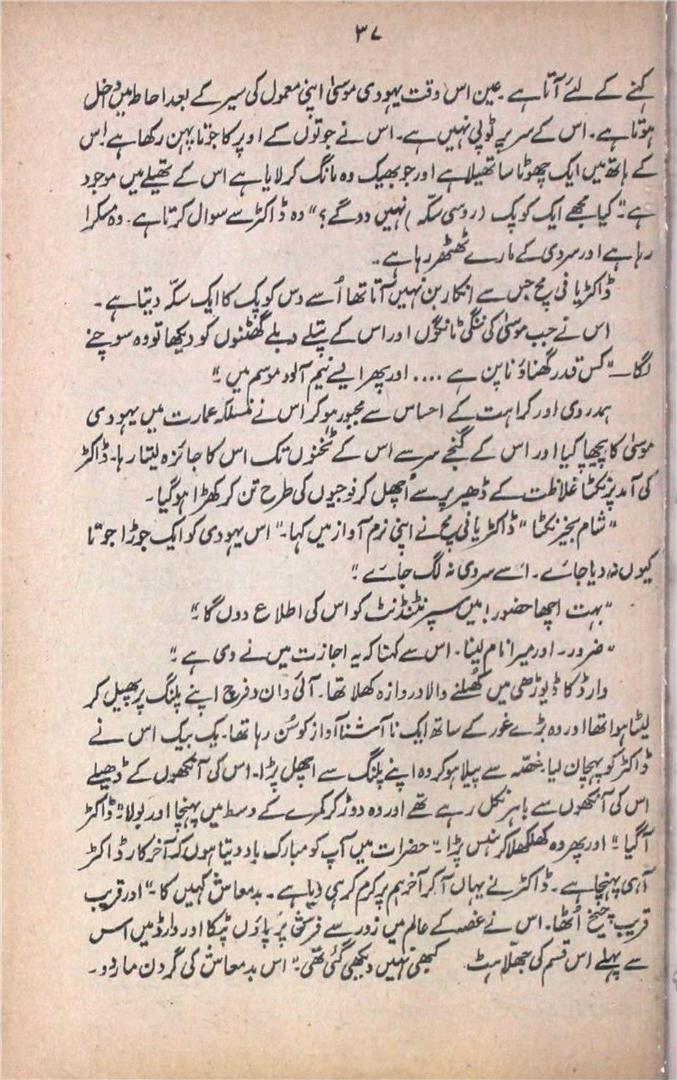 ۳۷
کہنے کے لئے آتا ہے۔ عین اس وقت یہودی موسیٰ اپنی معمول کی سیر کے بعد احاطہ میں داخل
ہوتا ہے۔ اس کے سر پر ٹوپی نہیں ہے۔ اس نے جوتوں کے اوپر کا جوتا پہن رکھا ہے اس
کے ہاتھ میں ایک چھوٹا سا تھیلا ہے اور جو بھیک وہ مانگ کر لایا ہے اس کے تھیلے میں موجود
ہے۔ "کیا مجھے ایک کوپک (روسی سکّہ) نہیں دو گے؟" وہ ڈاکٹر سے سوال کرتا ہے۔ وہ مسکرا
رہا ہے اور سردی کے مارے ٹھٹھر رہا ہے۔
ڈاکٹر یافی مچ جس سے انکار بن نہیں آتا تھا اُسے دس کوپک کا ایک سکّہ دیتا ہے۔
اس نے جب موسیٰ کی ننگی ٹانگوں اور اس کے پتلے دبلے گھٹنوں کو دیکھا تو وہ سوچنے
لگا۔ "کس قدر گھناؤنا پن ہے .... اور پھر ایسے نیم آلود موسم میں۔"
ہمدردی اور کراہت کے احساس سے مجبور ہو کر اس نے منسلکہ عمارت میں یہودی
موسیٰ کا پیچھا کیا اور اس کے گنجے سر سے اس کے ٹخنوں تک اس کا جائزہ لیتا رہا۔ ڈاکٹر
کی آمد پر نکٹا غلاظت کے ڈھیر پر سے اُچھل کر فوجیوں کی طرح تن کر کھڑا ہو گیا۔
"شام بخیر نکٹا" ڈاکٹر یافی مچ نے اپنی نرم آواز میں کہا۔ "اس یہودی کو ایک جوڑا جوتا
کیوں نہ دیا جائے۔ اسے سردی نہ لگ جائے۔"
"بہت اچھا حضور! میں سپرنٹنڈنٹ کو اس کی اطلاع دوں گا۔"
"ضرور۔ اور میرا نام لینا۔ اس سے کہنا کہ یہ اجازت میں نے دی ہے۔"
وارڈ کا ڈیوڑھی میں کُھلنے والا دروازہ کھلا تھا۔ آئی وان دفرچ اپنے پلنگ پر پھیل کر
لیٹا ہوا تھا اور وہ بڑے غور کے ساتھ ایک نا آشنا آواز کو سُن رہا تھا۔ یک بیک اس نے
ڈاکٹر کو پہچان لیا۔ غصّہ سے پیلا ہو کر وہ اپنے پلنگ سے اچھل پڑا۔ اس کی آنکھوں کے ڈھیلے
اس کی آنکھوں سے باہر نکل رہے تھے اور وہ دوڑ کر کمرے کے وسط میں پہنچا اور بولا "ڈاکٹر
آ گیا" اور پھر وہ کھلکھلا کر ہنس پڑا۔ "حضرات میں آپ کو مبارک باد دیتا ہوں کہ آخر کار ڈاکٹر
آ ہی پہنچا ہے۔ ڈاکٹر نے یہاں آ کر آخر ہم پر کرم کر ہی دیا ہے۔ بدمعاش کہیں کا۔" اور قریب
قریب چیخ اُٹھا۔ اس نے غصہ کے عالم میں زور سے فرش پر پاؤں پٹکا اور وارڈ میں اس
سے پہلے اس قسم کی جھلّاہٹ کبھی نہیں دیکھی گئی تھی۔ "اس بدمعاش کی گردن مار دو۔